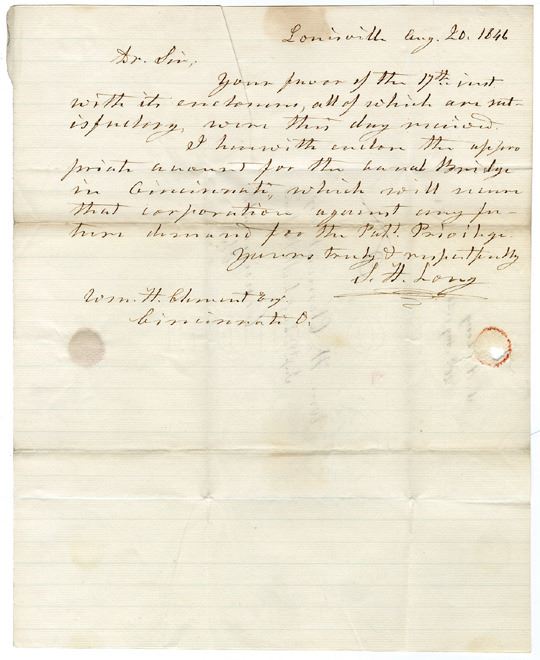 Louisville Aug. 20. 1846
Dr. Sir,
Your favor of the 17th. inst
with its enclosures, all of which are sat-
isfactory, were this day received.
I herewith enclose the appro
priate account for the canal Bridge
in Cincinnati, which will secure
that corporation against any fu-
ture demand for the Pat. Privilege.
Yours truly & respectfully
S. H. Long
Wm. H. Clement Esq.
Cincinnati O.